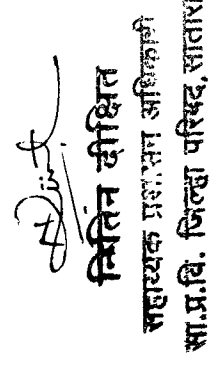 नितिन दीक्षित
सहाय्यक प्रशासन अधिकारी
सा.प्र.वि. जिल्हा परिषद, सातारा